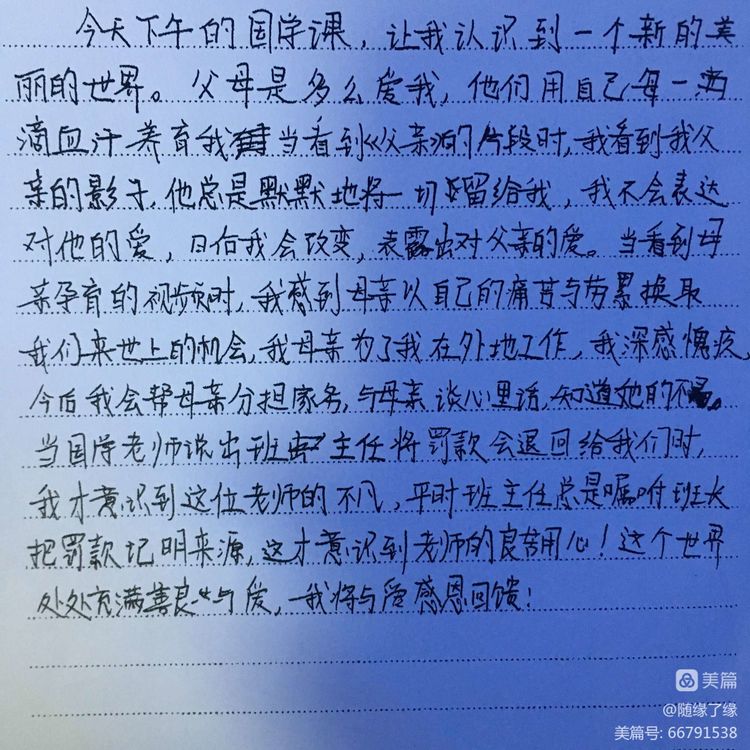 今天下午的国学课，让我认识到一个新的美
丽的世界。父母是多么爱我，他们用自己每一滴
滴血汗养育我 当看到《父亲》的片段时，我看到我父
亲的影子，他总是默默地将一切留给我，我不会表达
对他的爱，日后我会改变，表露出对父亲的爱。当看到母
亲孕育的视频时，我感到母亲以自己的痛苦与劳累换取
我们来世上的机会，我母亲为了我在外地工作，我深感愧疚，
今后我会帮母亲分担家务，与母亲谈心里话，知道她的不易。
当国学老师说出班主任将罚款会退回给我们时，
我才意识到这位老师的不凡，平时班主任总是嘱咐班长
把罚款记明来源，这才意识到老师的良苦用心！这个世界
处处充满善良与爱，我将与爱感恩回馈！
美篇
@随缘了缘
美篇号: 66791538